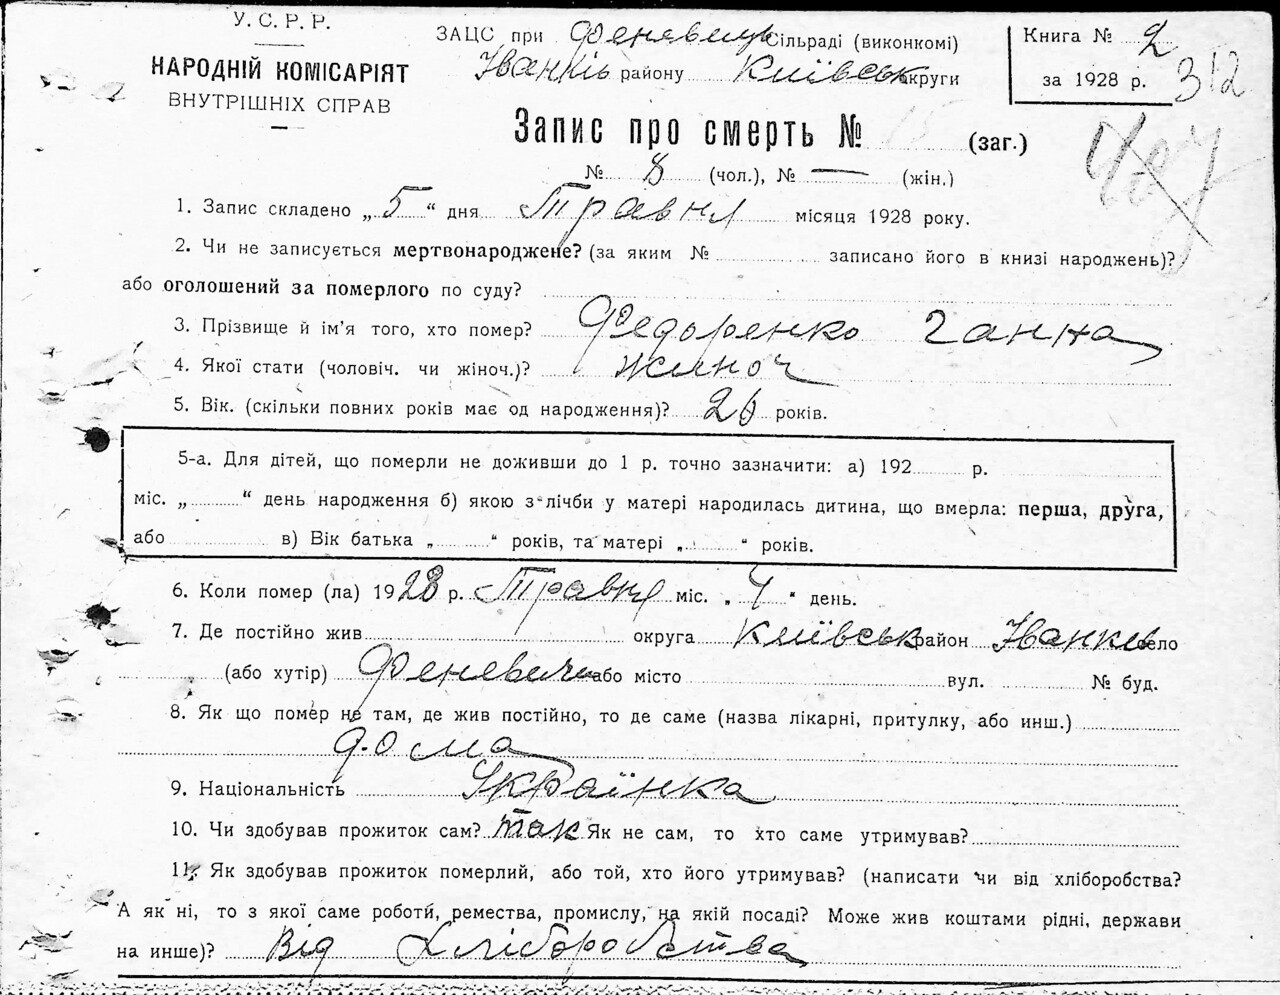 У.С.Р.Р.
НАРОДНІЙ КОМІСАРІЯТ
ВНУТРІШНІХ СПРАВ
ЗАЦС при Феневець Сільраді (виконкомі)
Іванків району Київськ округи
Книга № 2
за 1928 р.
312
Запис про смерть № 15 (заг.)
№ 8 (чол.), № — (жін.)
1. Запис складено „5“ дня Травня місяця 1928 року.
2. Чи не записується мертвонароджене? (за яким № записано його в книзі народжень)?
або оголошений за померлого по суду?
3. Прізвище й ім'я того, хто помер? Федоренко Ганна
4. Якої статі (чоловіч. чи жіноч.)? жіноч
5. Вік. (скільки повних років має од народження)? 26 років.
5-а. Для дітей, що померли не доживши до 1 р. точно зазначити: а) 192 р.
міс. „ “ день народження б) якою з-лічби у матері народилась дитина, що вмерла: перша, друга,
або в) Вік батька „ “ років, та матері „ “ років.
6. Коли помер (ла) 1928 р. Травня міс. „4“ день.
7. Де постійно жив округа Київськ район Іванків село
(або хутір) Феневичі або місто вул. № буд.
8. Як що помер не там, де жив постійно, то де саме (назва лікарні, притулку, або инш.)
дома
9. Національність Українка
10. Чи здобував прожиток сам? так Як не сам, то хто саме утримував?
11. Як здобував прожиток померлий, або той, хто його утримував? (написати чи від хліборобства?
А як ні, то з якої саме роботи, ремества, промислу, на якій посаді? Може жив коштами рідні, держави
на инше)? Від хліборобства